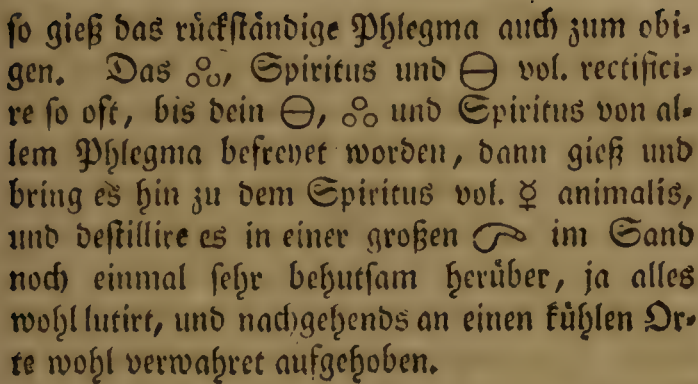 so gieß das rückständige Phlegma auch zum obi-
gen. Das ꝏ, Spiritus und 🜔 vol. rectifici-
re so oft, bis dein 🜔, ꝏ und Spiritus von al-
lem Phlegma befreyet worden, dann gieß und
bring es hin zu dem Spiritus vol. ☿ animalis,
und destillire es in einer großen 🝭 im Sand
noch einmal sehr behutsam herüber, ja alles
wohl lutirt, und nachgehends an einen kühlen Or-
te wohl verwahret aufgehoben.